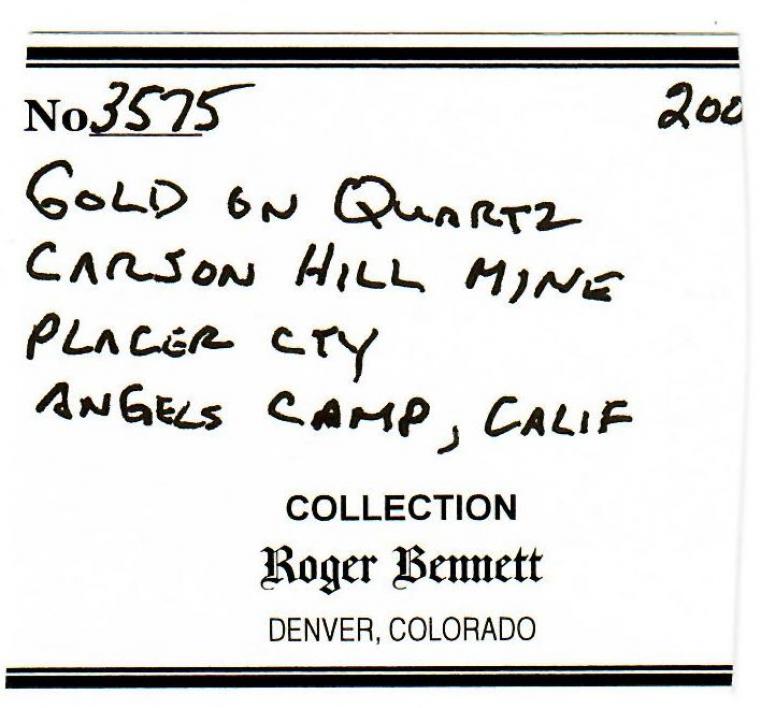 No 3575 200
GOLD ON QUARTZ
CARSON HILL MINE
PLACER CTY
ANGELS CAMP, CALIF
COLLECTION
Roger Bennett
DENVER, COLORADO